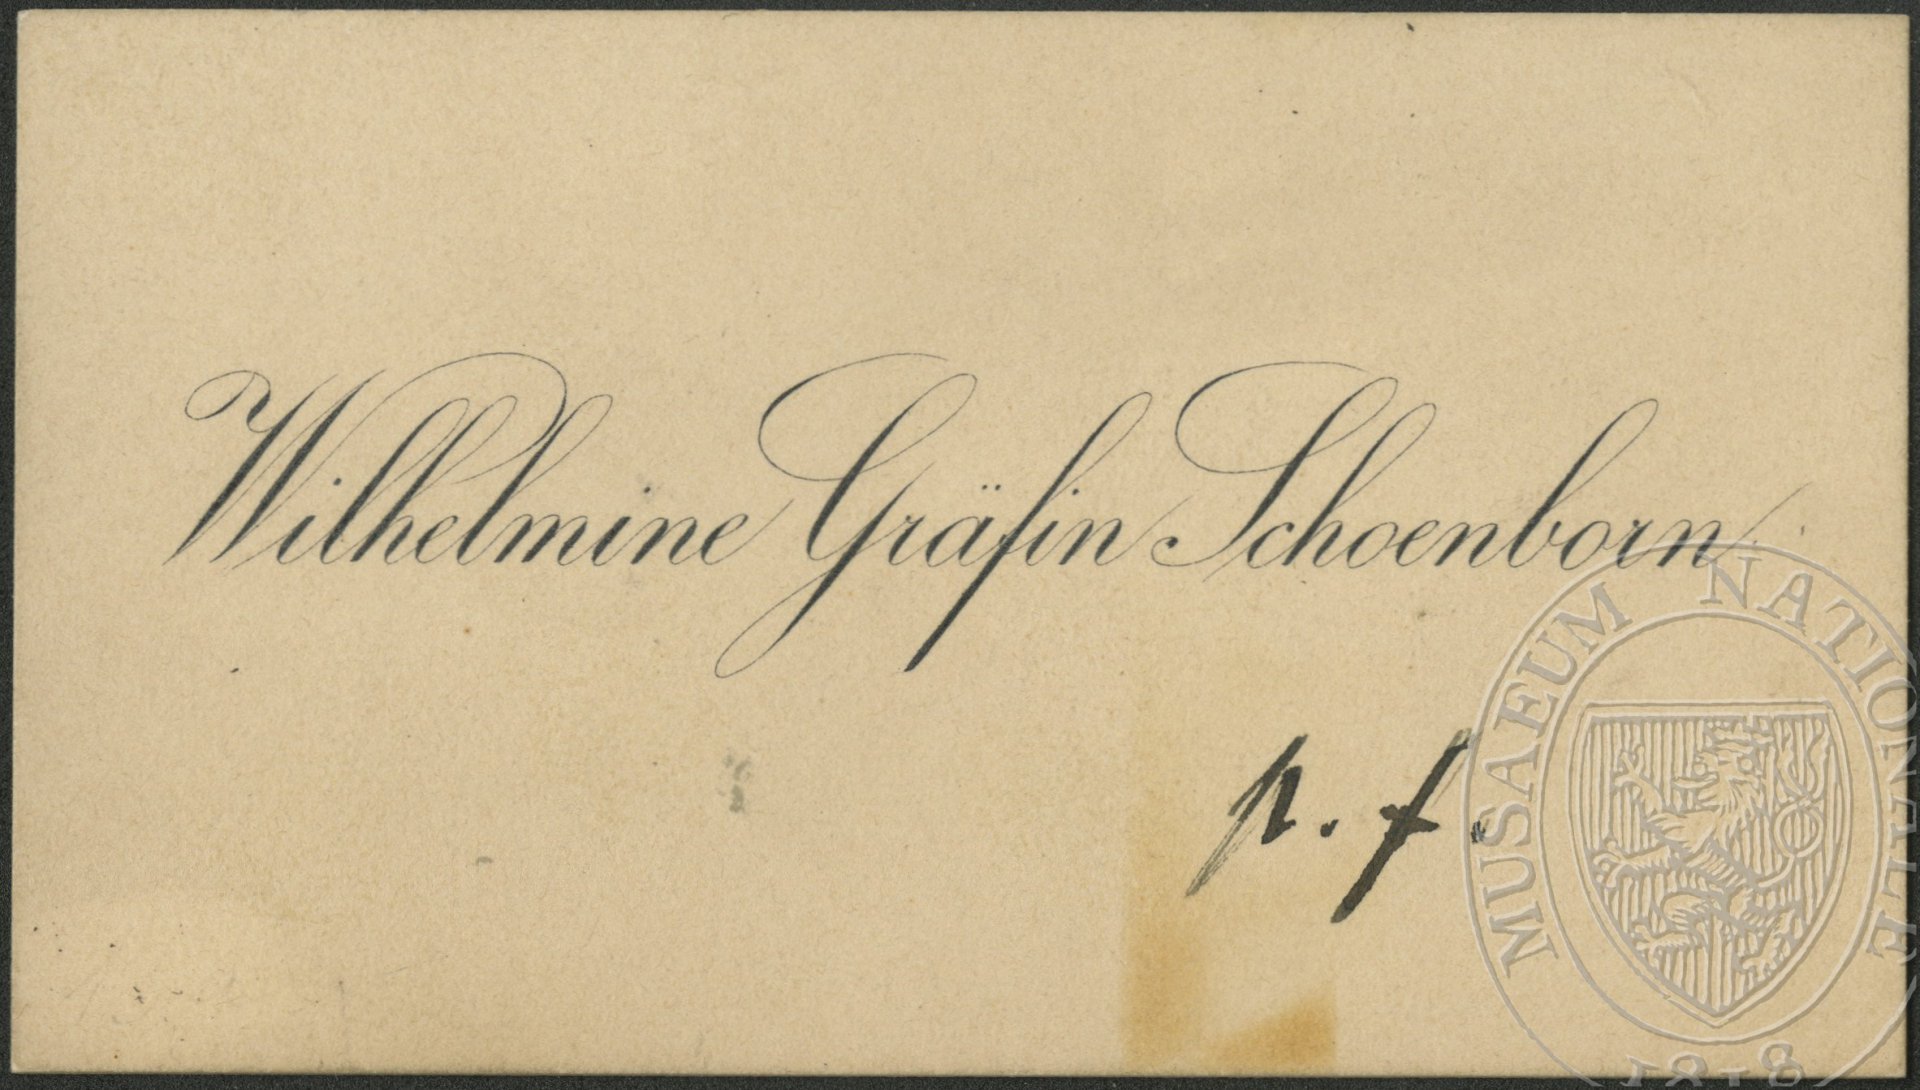 Wilhelmine Gräfin Schoenborn
p. f.
MUSAEUM NATIONALE
1818